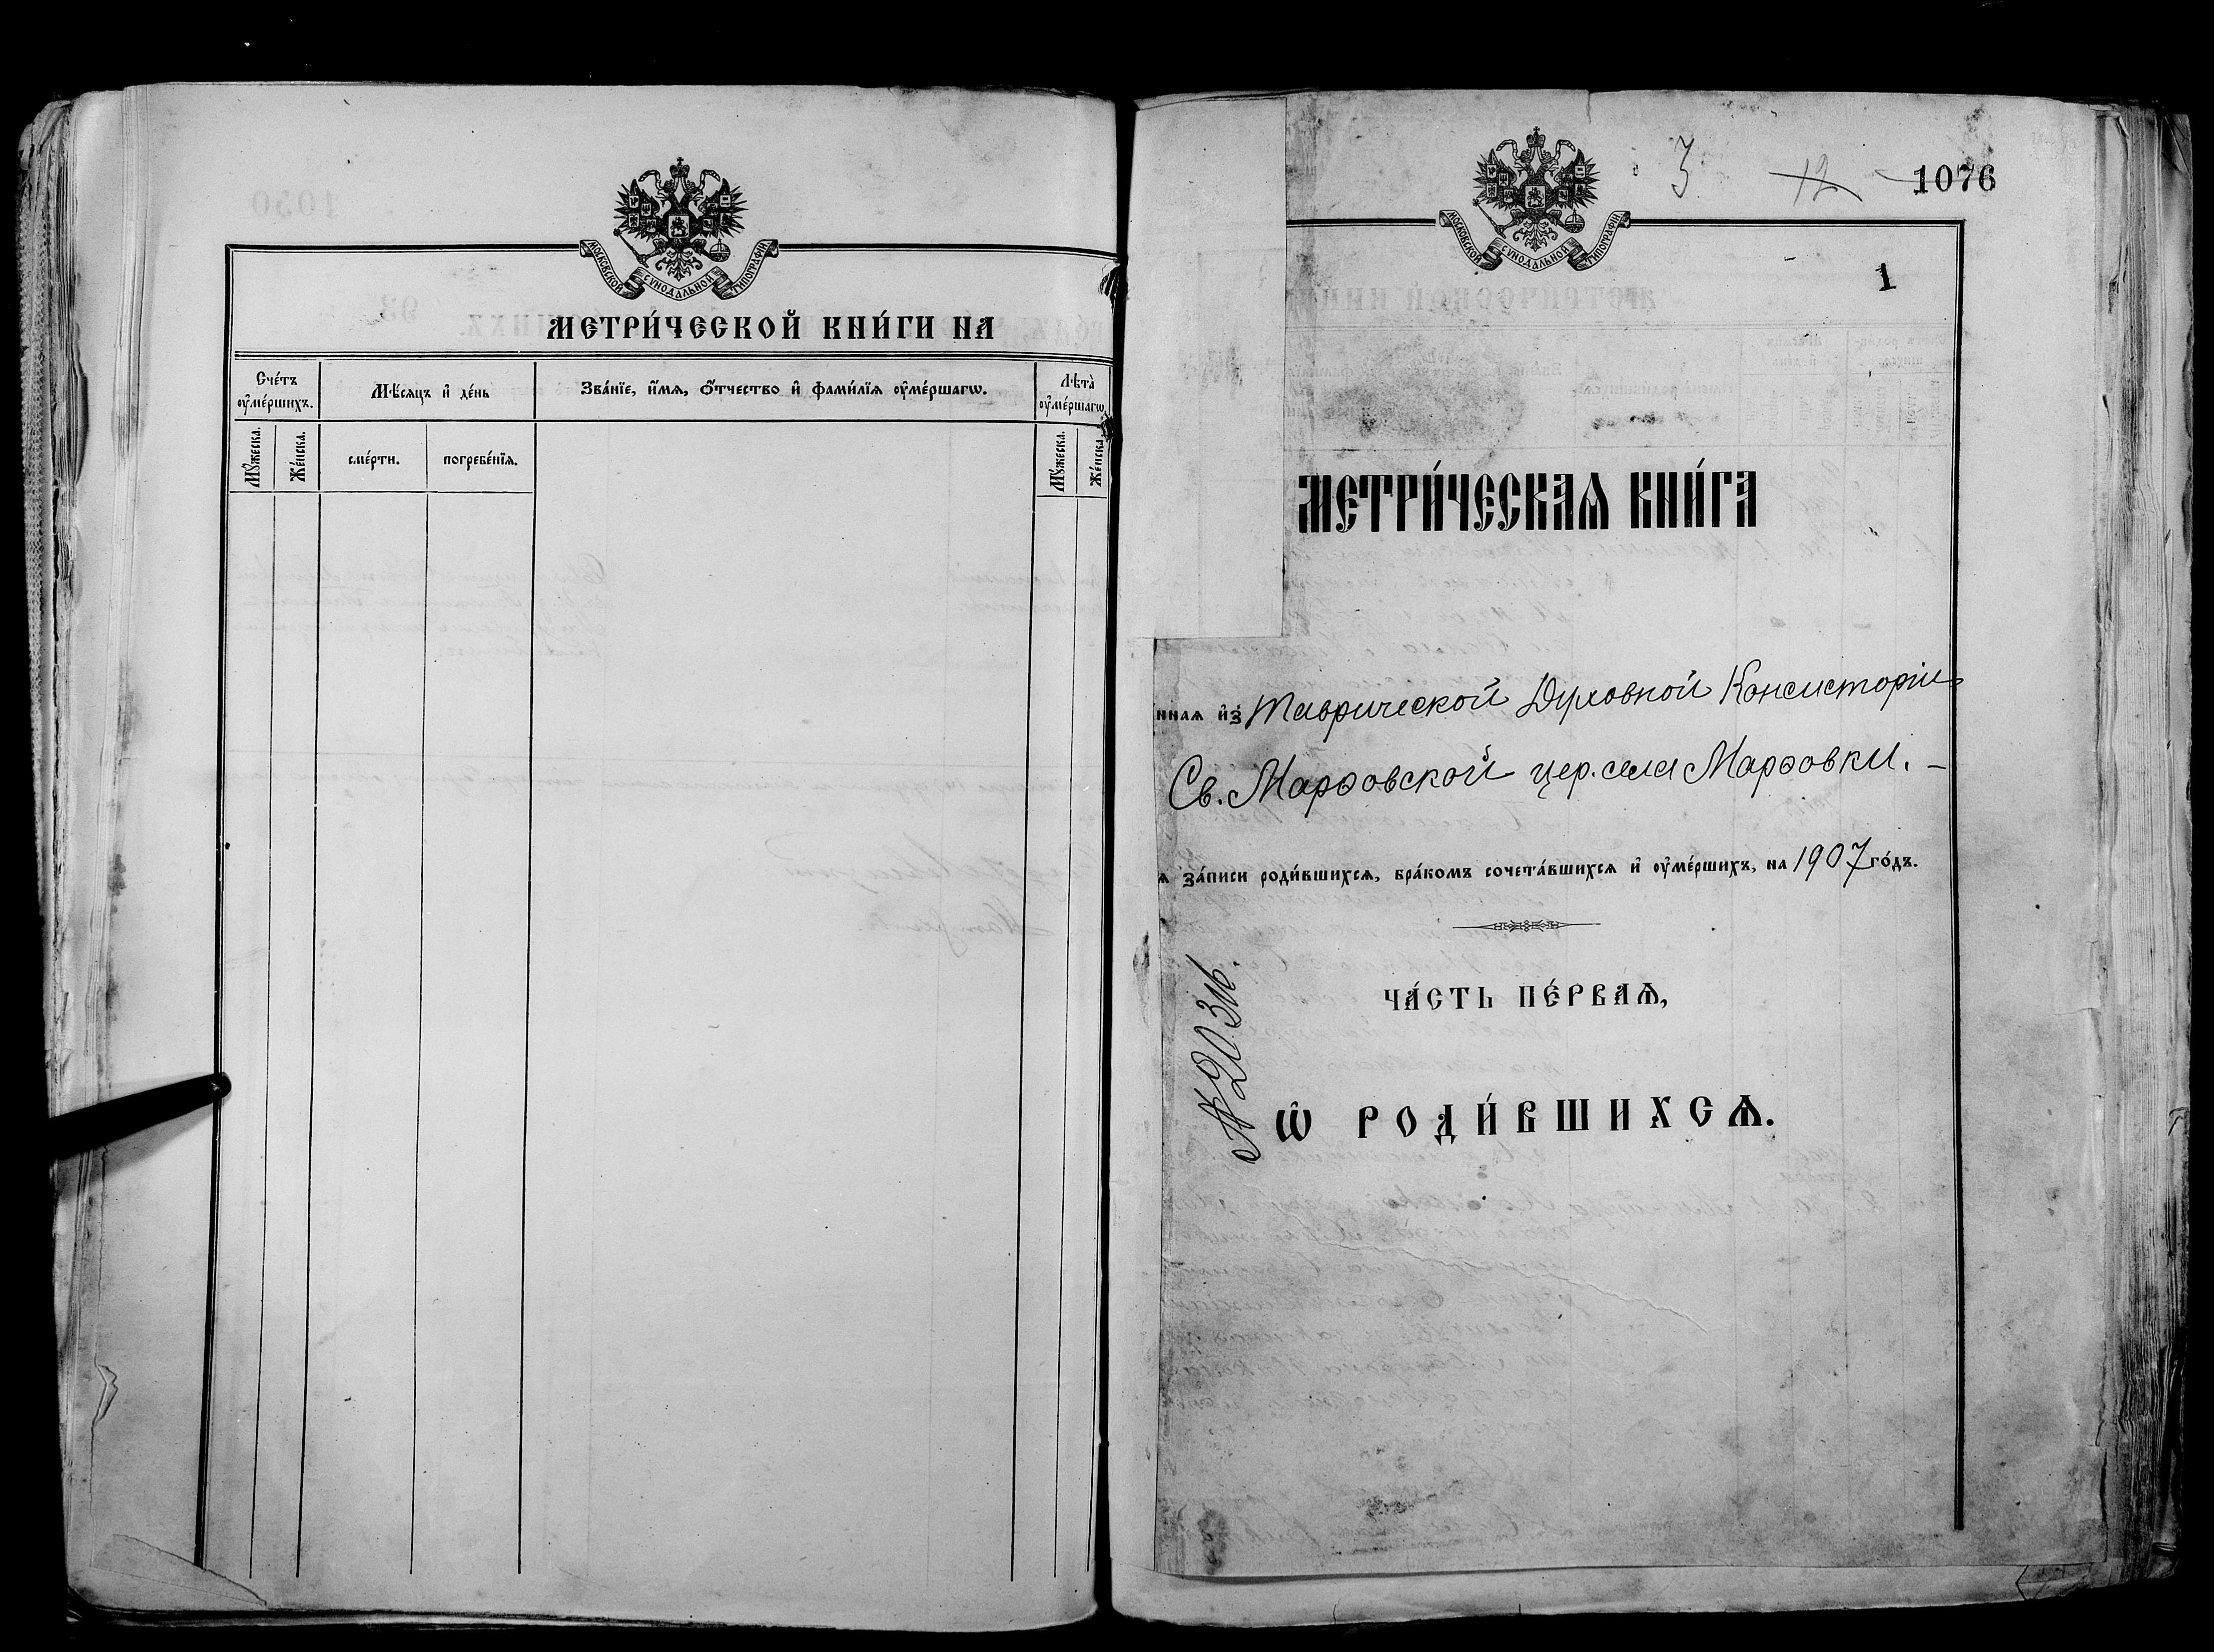 МОСКОВСКОЙ СѴНОДАЛЬНОЙ ТИПОГРАФІИ
МЕТРИ́ЧЕСКОЙ КНИ́ГИ НА
Сче́тъ ᲂу҆ме́ршихъ.
Мѣ́сяцъ и҆ де́нь
Зва́нїе, и҆́мѧ, ѻ҆́тчество и҆ фами́лїѧ ᲂу҆ме́ршагѡ.
Лѣта̀ ᲂу҆ме́ршагѡ
Мꙋ́жеска.
Же́нска.
сме́рти.
погребе́нїѧ.
Мꙋ́жеска.
Же́нска
3 12 1076
МОСКОВСКОЙ СѴНОДАЛЬНОЙ ТИПОГРАФІИ
1
МЕТРИ́ЧЕСКАѦ КНИ́ГА
ннаѧ и҆з̾ Таврической Духовной Консисторіи
Св. Марѳовской цер. села Марѳовки. –
ѧ за́писи роди́вшихсѧ, бра́комъ сочета́вшихсѧ и҆ ᲂу҆ме́ршихъ, на 1907 го́дъ.
ЧА́СТЬ ПЕ́РВАѦ,
№ 20316.
Ѡ҆ РОДИ́ВШИХСѦ.